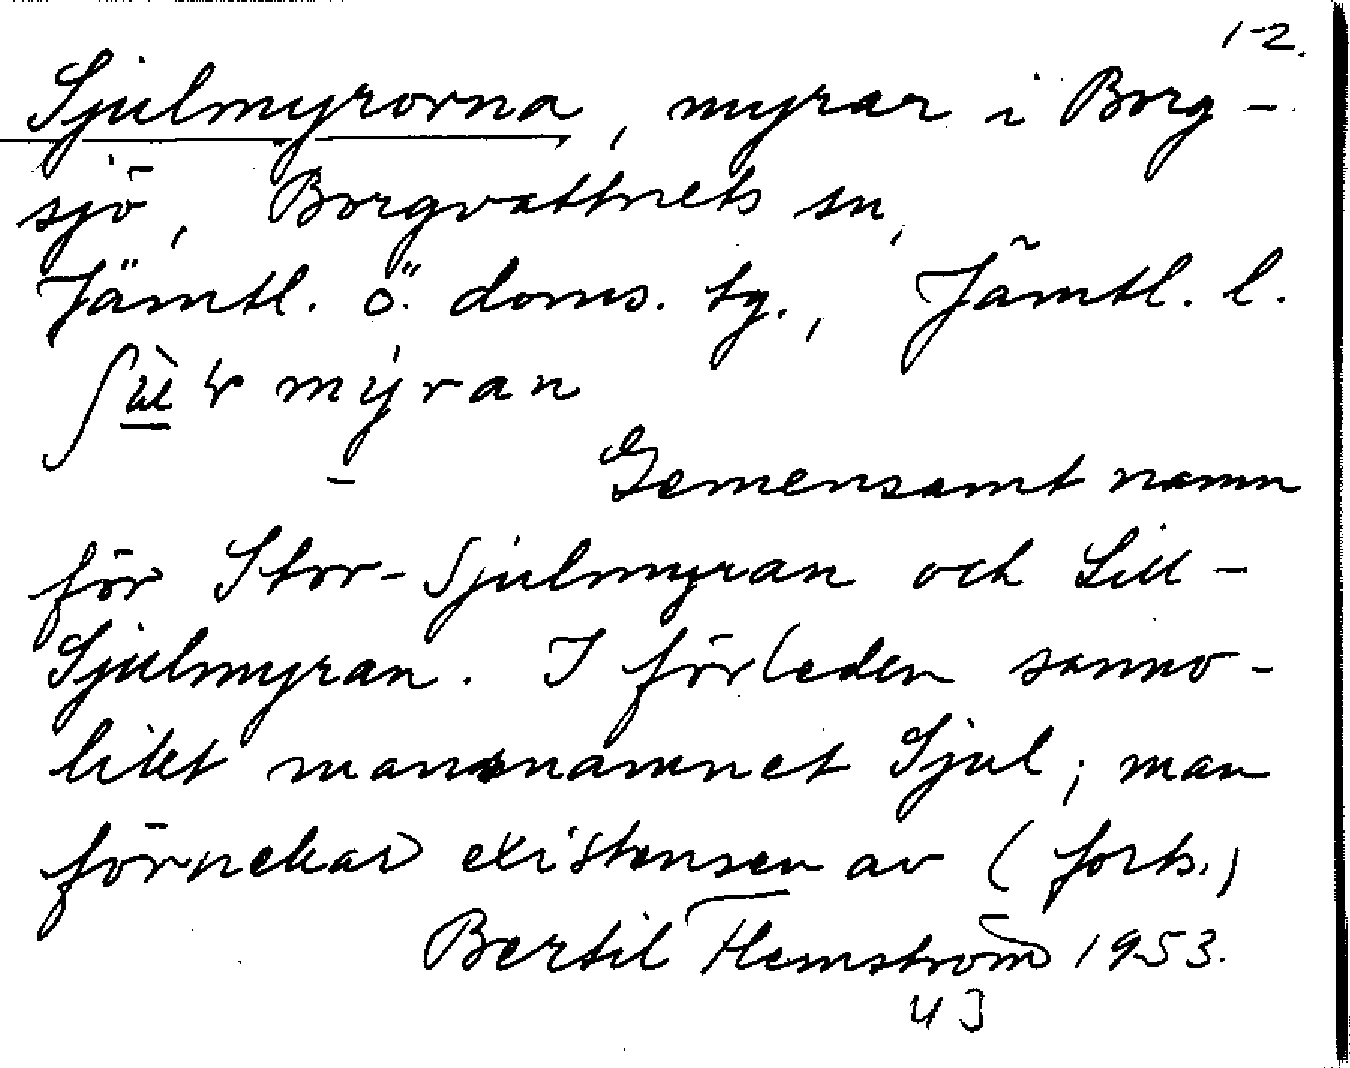 1-2.
Sjulmyrorna, myrar i Borg-
sjö, Borgvattnets sn,
Jämtl. ö. doms. tg., Jämtl. l.
myran
Gemensamt namn
för Stor-Sjulmyran och Lill-
Sjulmyran. I förleden sanno-
likt mansnamnet Sjul; man
förnekar existensen av (forts.)
Bertil Flemström 1953.